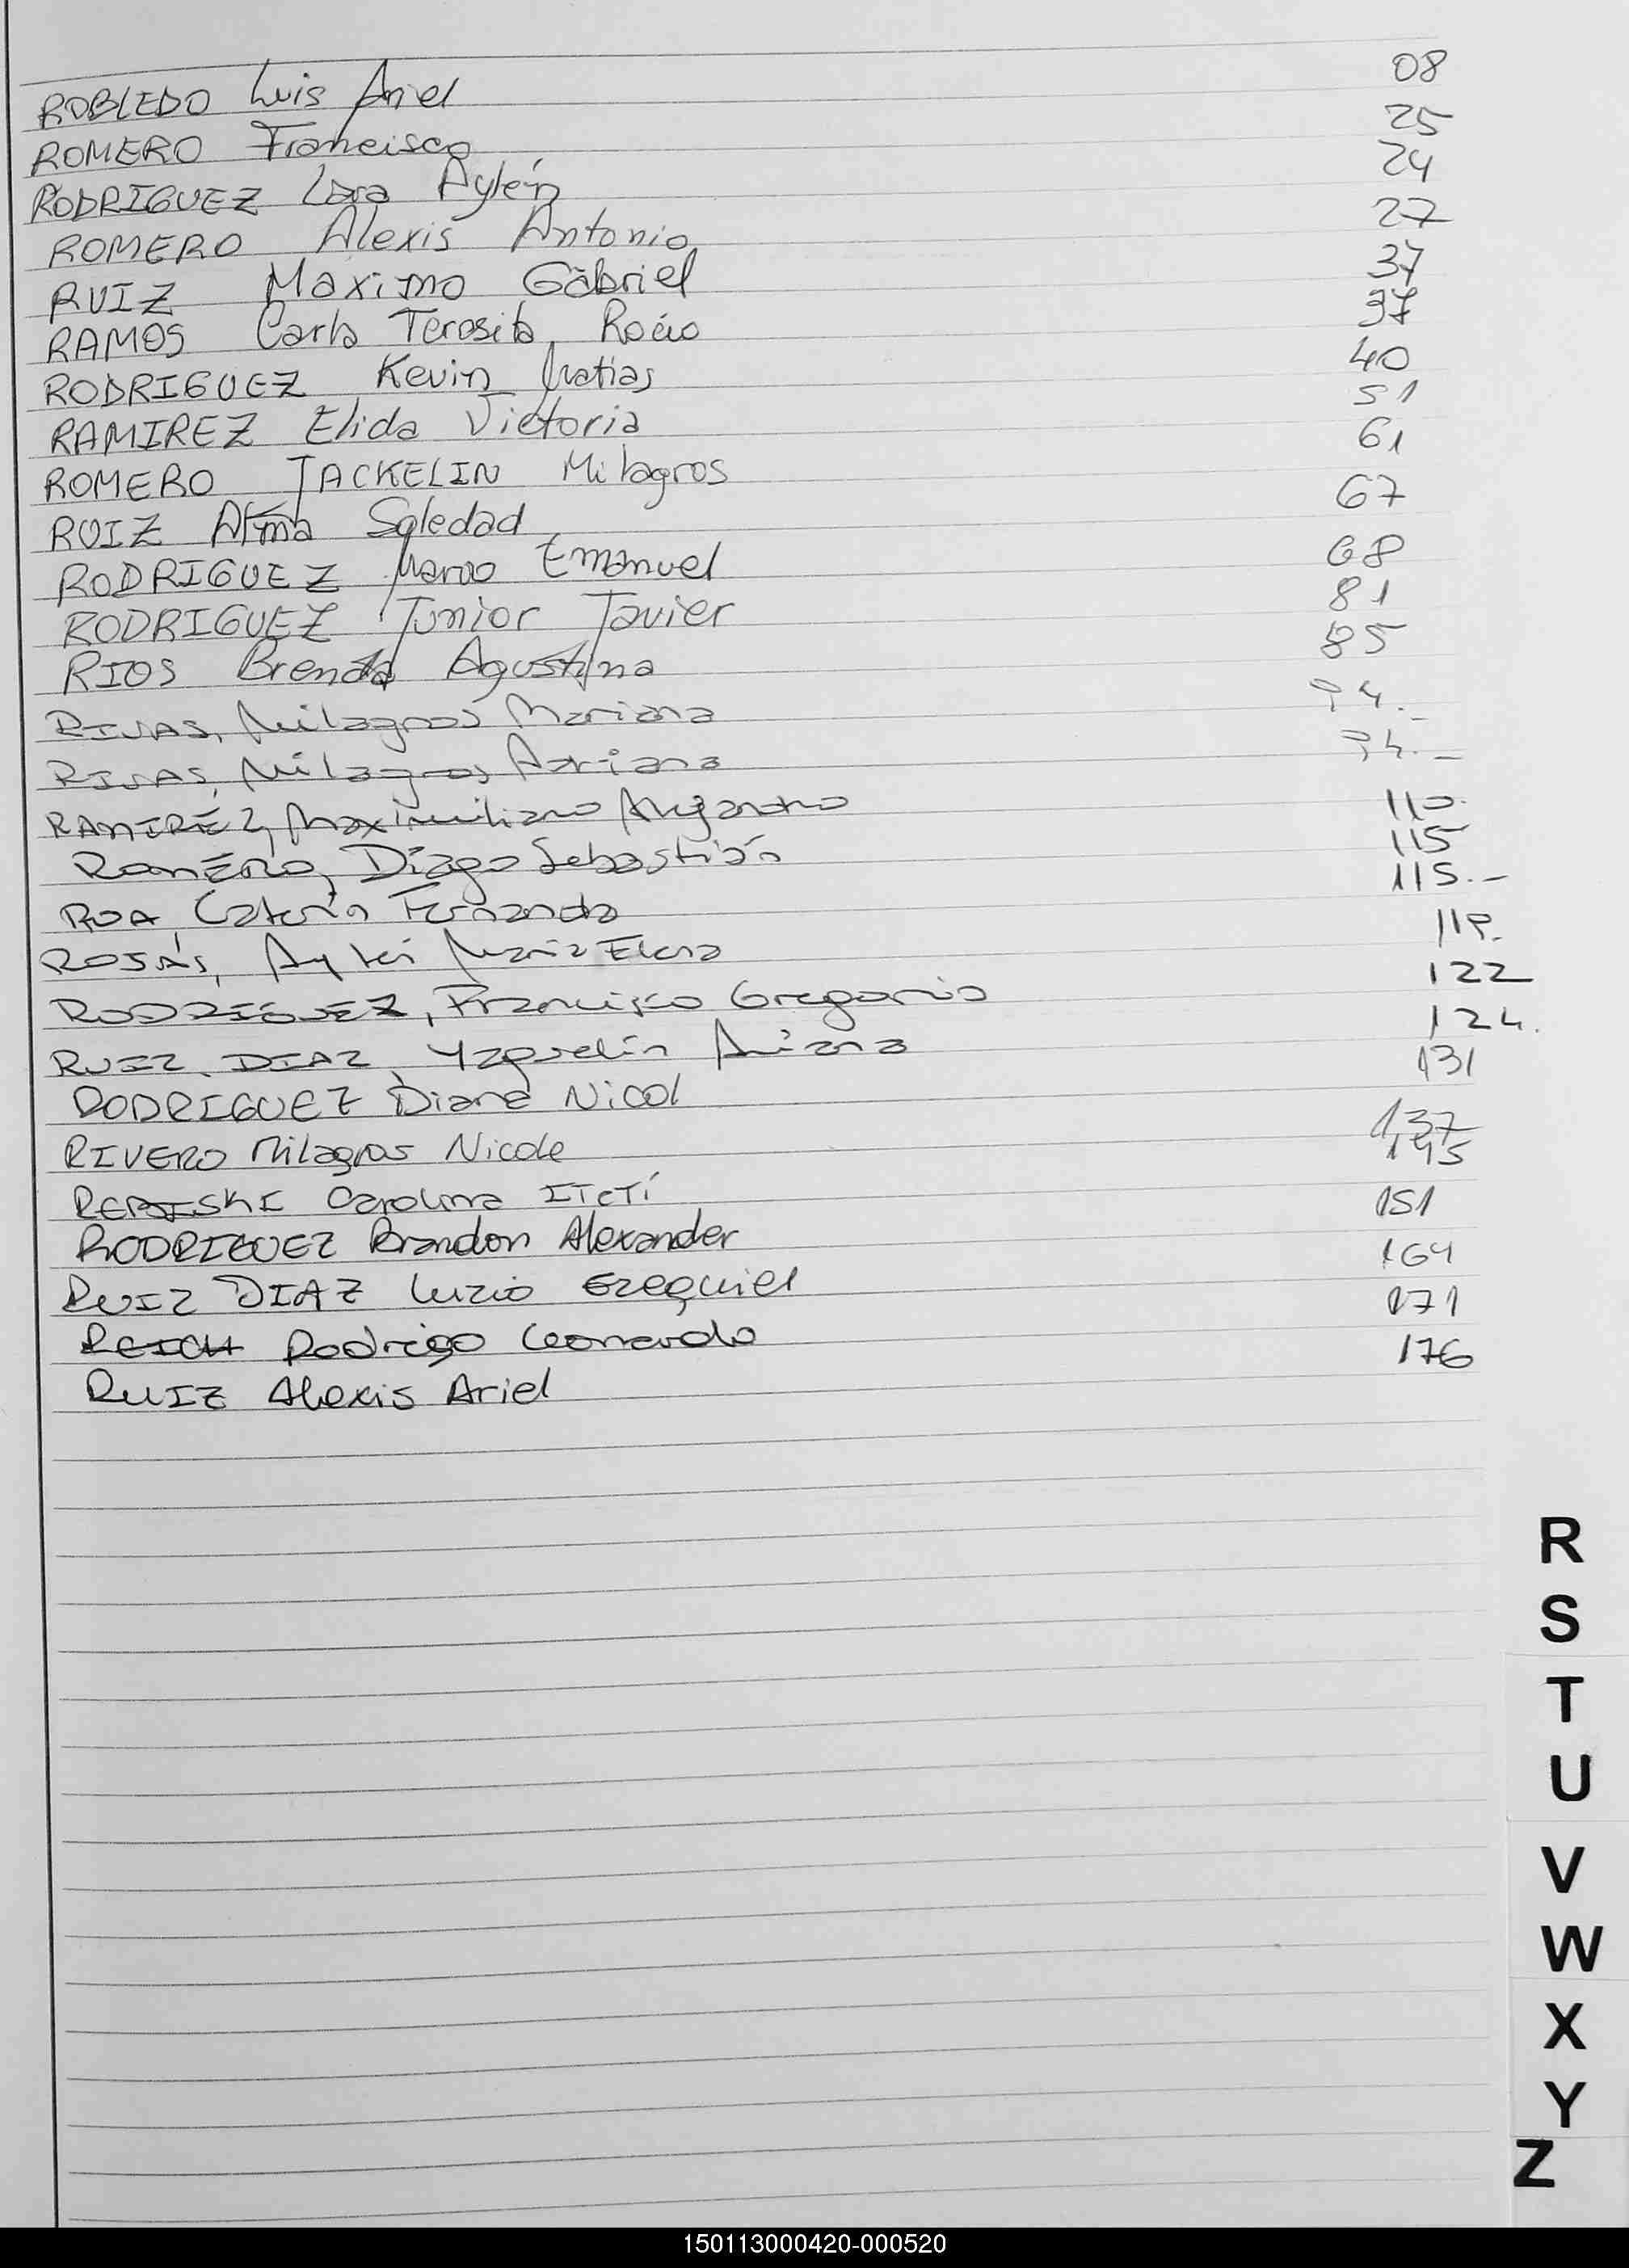 ROBLEDO Luis Ariel 08
ROMERO Francisco 25
RODRIGUEZ Lara Aylén 24
ROMERO Alexis Antonio 27
RUIZ Maximo Gabriel 37
RAMOS Carla Teresita Rocío 37
RODRIGUEZ Kevin Matias 40
RAMIREZ Elida Victoria 51
ROMERO JACKELIN Milagros 61
RUIZ Alma Soledad 67
RODRIGUEZ Marco Emanuel 68
RODRIGUEZ Junior Javier 81
RIOS Brenda Agustina 85
RIVAS, Milagros Mariana 94.
RIVAS, Milagros Adriana 94.-
RAMIREZ, Maximiliano Alejandro 110.
ROMERO, Diego Sebastián 115
ROA, Fernanda 115.-
ROJAS, María Elena 119.
RODRIGUEZ, Francisco Gregorio 122
RUIZ DIAZ, Yaquelin 124.
RODRIGUEZ Diana Nicol 131
RIVERO Milagros Nicole 137
Carolina Itatí 145
RODRIGUEZ Brandon Alexander 151
RUIZ DIAZ Ezequiel 164
REICH Rodrigo Leonardo 171
RUIZ Alexis Ariel 176
R
S
T
U
V
W
X
Y
Z
150113000420-000520